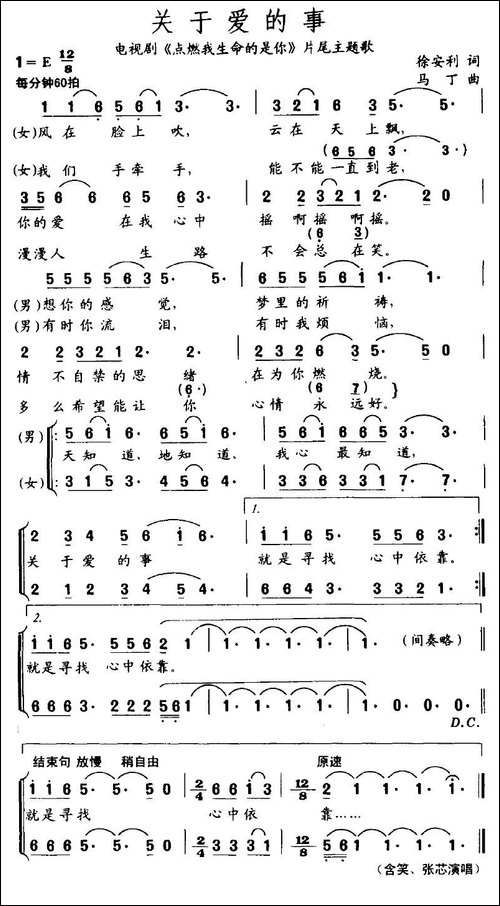 关于爱的事
电视剧《点燃我生命的是你》片尾主题歌
1=E 12/8
每分钟60拍
徐安利 词
马丁 曲
1 1 6 5 6 1 3· 3· | 3 2 1 6 3· 5· 5· |
(女)风在 脸上吹, 云在天上飘,
(6 5 6 3· 3·)
(女)我们 手牵手, 能不能一直到老,
3 5 6 6 5 6 3· | 2 2 3 2 1 2· 2 0
你的爱 在我心中 摇啊摇 啊摇。
(6 3)
漫漫人 生路 不会总在笑。
5 5 5 5 6 1 3· 5· 5· | 6 5 5 5 6 1 5· 5· |
(男)想你的感觉, 梦里的祈祷,
(男)有时你流泪, 有时我烦恼,
2 2 3 2 1 2· 2· | 2 3 2 6 3· 5· 5 0
情不自禁的思绪 在为你燃烧。
(6·) (6 7)
多么希望能让你 心情永远好。
(男) 5 6 1 6· 6 5 1 6· | 5 6 1 6 6 5 3· 3·
天知道,地知道, 我心最知道,
(女) 3 1 5 3· 4 5 6 4· | 3 3 6 3 3 1 7· 7·
1.
2 3 4 5 6 1 6· | 1 1 6 5· 5 5 6 3·
关于爱的事 就是寻找 心中依靠。
2 1 2 3 4 5 4· | 6 6 4 3· 2 2 2 1·
2.
1 1 6 5· 5 5 6 2 1 | 1· 1· 1· 1· | 1· (间奏略)
就是寻找 心中依靠。
6 6 6 3· 2 2 2 5 6 1 | 1· 1· 1· 1· | 1· 0· 0· 0·
D.C.
结束句 放慢 稍自由 原速
1 1 6 5· 5· 5 0 | 2/4 6 6 1 3 | 12/8 2 1· 1· 1· 1·
就是寻找 心中依 靠……
6 6 6 5· 5· 5 0 | 2/4 3 3 3 1 | 12/8 5 6 1· 1· 1· 1·
(含笑、张芯演唱)